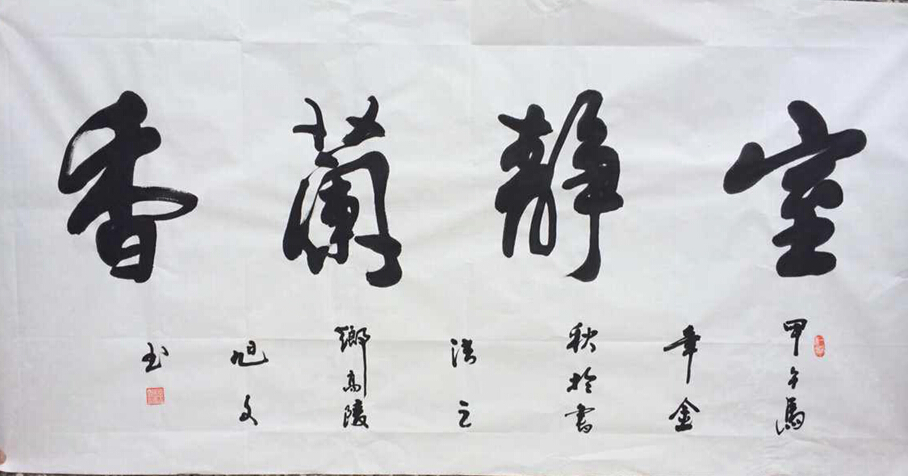 室靜蘭香
甲午馬
年金
秋於書
法之
鄉高陵
旭文
玉